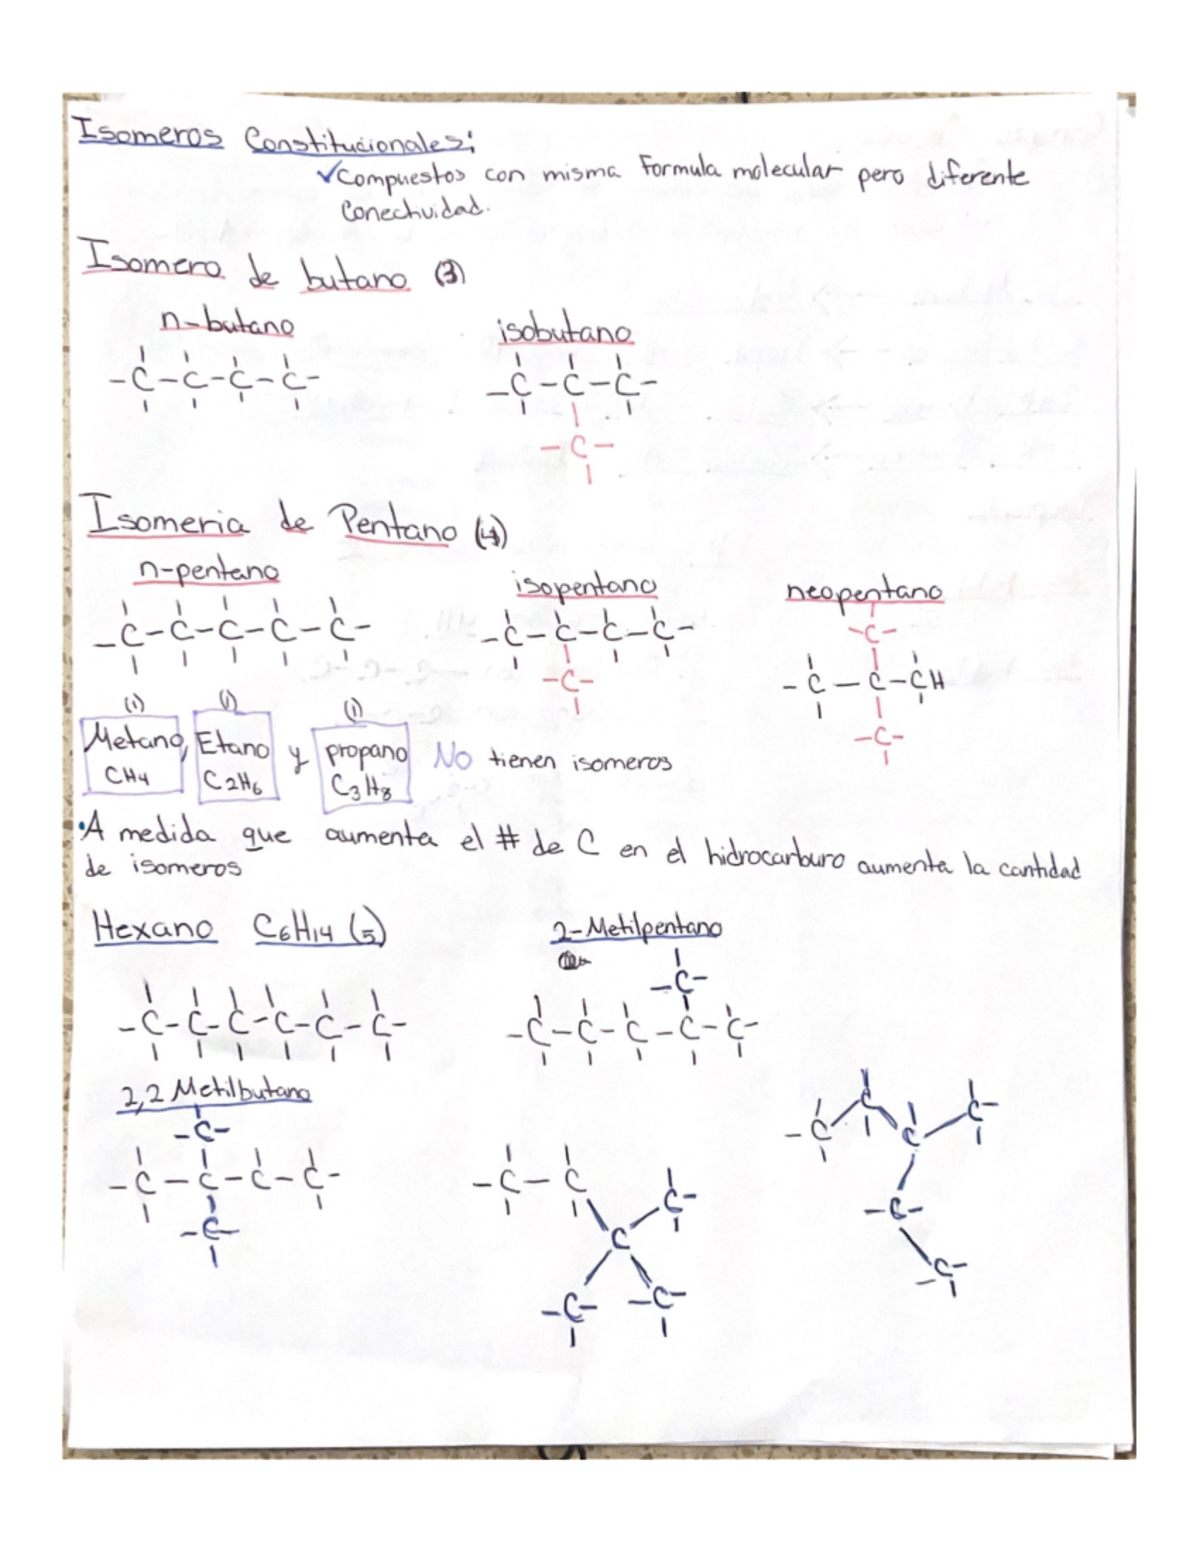 Isomeros Constitucionales:
✓Compuestos con misma Formula molecular pero diferente
Conectividad.
Isomero de butano (3)
n-butano isobutano
-C-C-C-C- -C-C-C-
-C-
Isomeria de Pentano (4)
n-pentano isopentano neopentano
-C-
-C-C-C-C-C- -C-C-C-C- -C-C-CH
-C- -C-
(1) (1) (1)
Metano, Etano y propano No tienen isomeros
CH4 C2H6 C3H8
•A medida que aumenta el # de C en el hidrocarburo aumenta la cantidad
de isomeros
Hexano C6H14 (5) 2-Metilpentano
-C-
-C-C-C-C-C-C- -C-C-C-C-C-
2,2 Metilbutano
-C-
-C-C-C-C-
-C-
-C-C
C-
C
-C- -C-
-C C C C-
-C-
C-